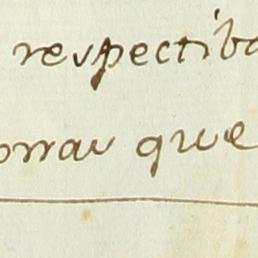 respectiba
orrau que